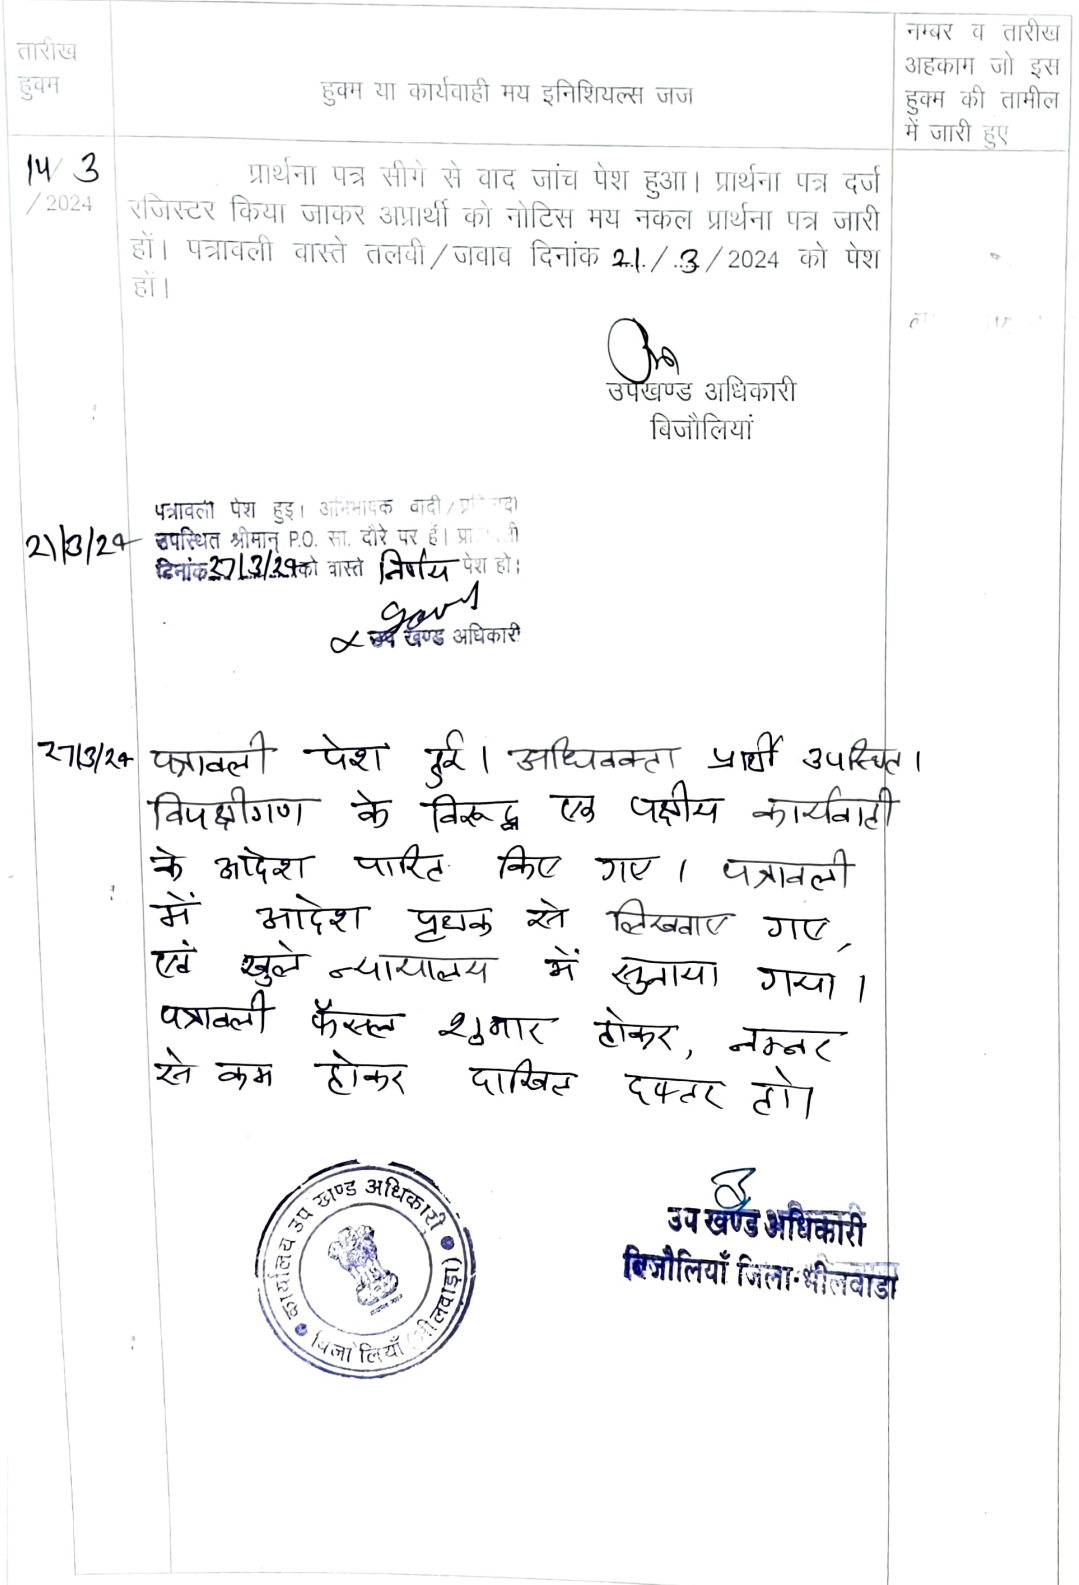 तारीख
हुक्म
हुक्म या कार्यवाही मय इनिशियल्स जज
नम्बर व तारीख
अहकाम जो इस
हुक्म की तामील
में जारी हुए
14/3
/2024
प्रार्थना पत्र सीगे से वाद जांच पेश हुआ। प्रार्थना पत्र दर्ज
रजिस्टर किया जाकर अप्रार्थी को नोटिस मय नकल प्रार्थना पत्र जारी
हों। पत्रावली वास्ते तलवी/जवाव दिनांक 21/3/2024 को पेश
हों।
उपखण्ड अधिकारी
बिजौलियां
21/3/24
पत्रावली पेश हुइ। अभिभाषक वादी/
उपस्थित श्रीमान् P.O. सा. दौरे पर हैं।
दिनांक 27/3/24 को वास्ते निर्णय पेश हो।
उप खण्ड अधिकारी
27/3/24
पत्रावली पेश हुई। अधिवक्ता प्रार्थी उपस्थित।
विपक्षीगण के विरूद्ध एक पक्षीय कार्यवाही
के आदेश पारित किए गए। पत्रावली
में आदेश पृथक से लिखवाए गए,
एवं खुले न्यायालय में सुनाया गया।
पत्रावली फैसल शुमार होकर, नम्बर
से कम होकर दाखिल दफ्तर हो।
कार्यालय उप खण्ड अधिकारी
बिजोलियाँ (भीलवाड़ा)
उप खण्ड अधिकारी
बिजौलियाँ जिला-भीलवाडा